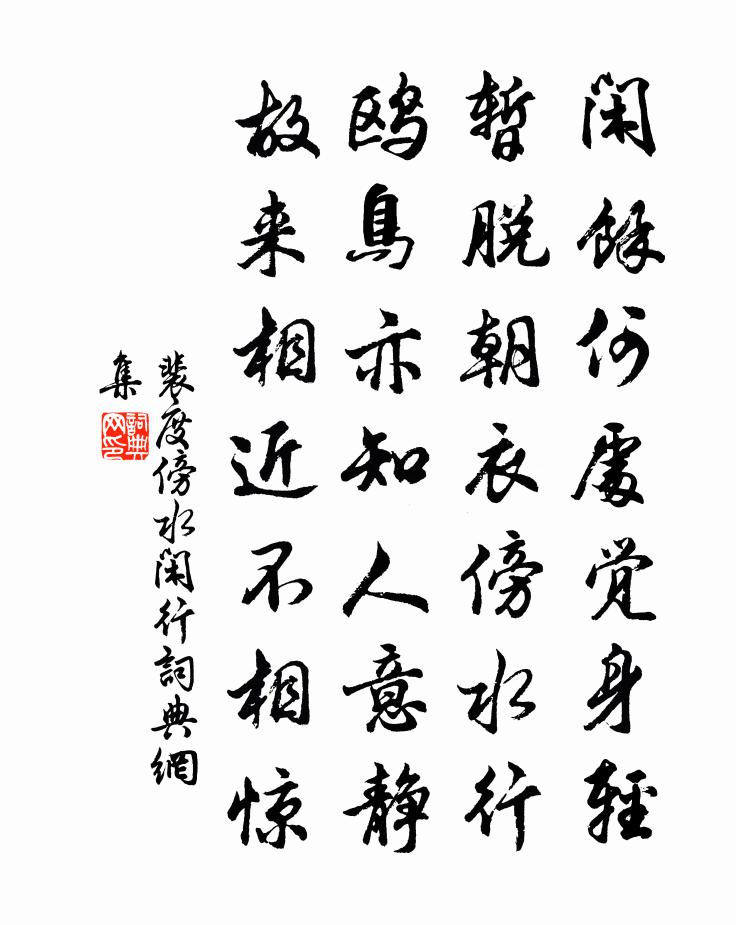 閑餘何處觉身輕
暫脱朝衣傍水行
鸥鳥亦知人意静
故来相近不相惊
裴度傍水閑行詞典網
集
詞典
网印